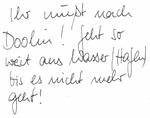 Ihr müßt nach
Doolin! Geht so
weit ans Wasser/Hafen/
bis es nicht mehr
geht!